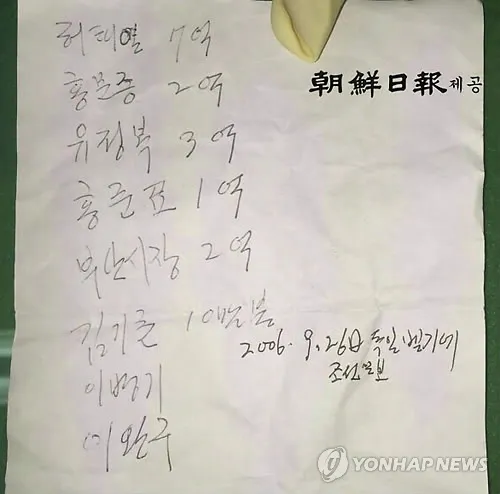 허태열 7억
홍문종 2억
朝鮮日報 제공
유정복 3억
홍준표 1억
부산시장 2억
김기춘 10만불
2006. 9. 26日 독일 벨기에
조선일보
이병기
이완구
YONHAP NEWS